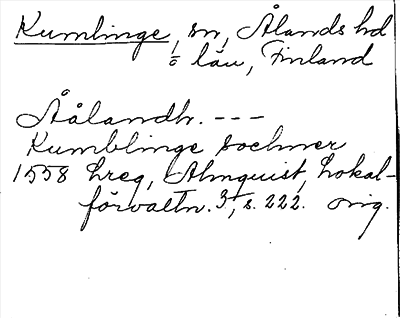 Kumlinge, sn, Ålands hd
o län, Finland
Åålandh. - - -
Kumblinge sochner
1558 hreg, Almquist, Lokal-
förvaltn. 3, s. 222. orig.